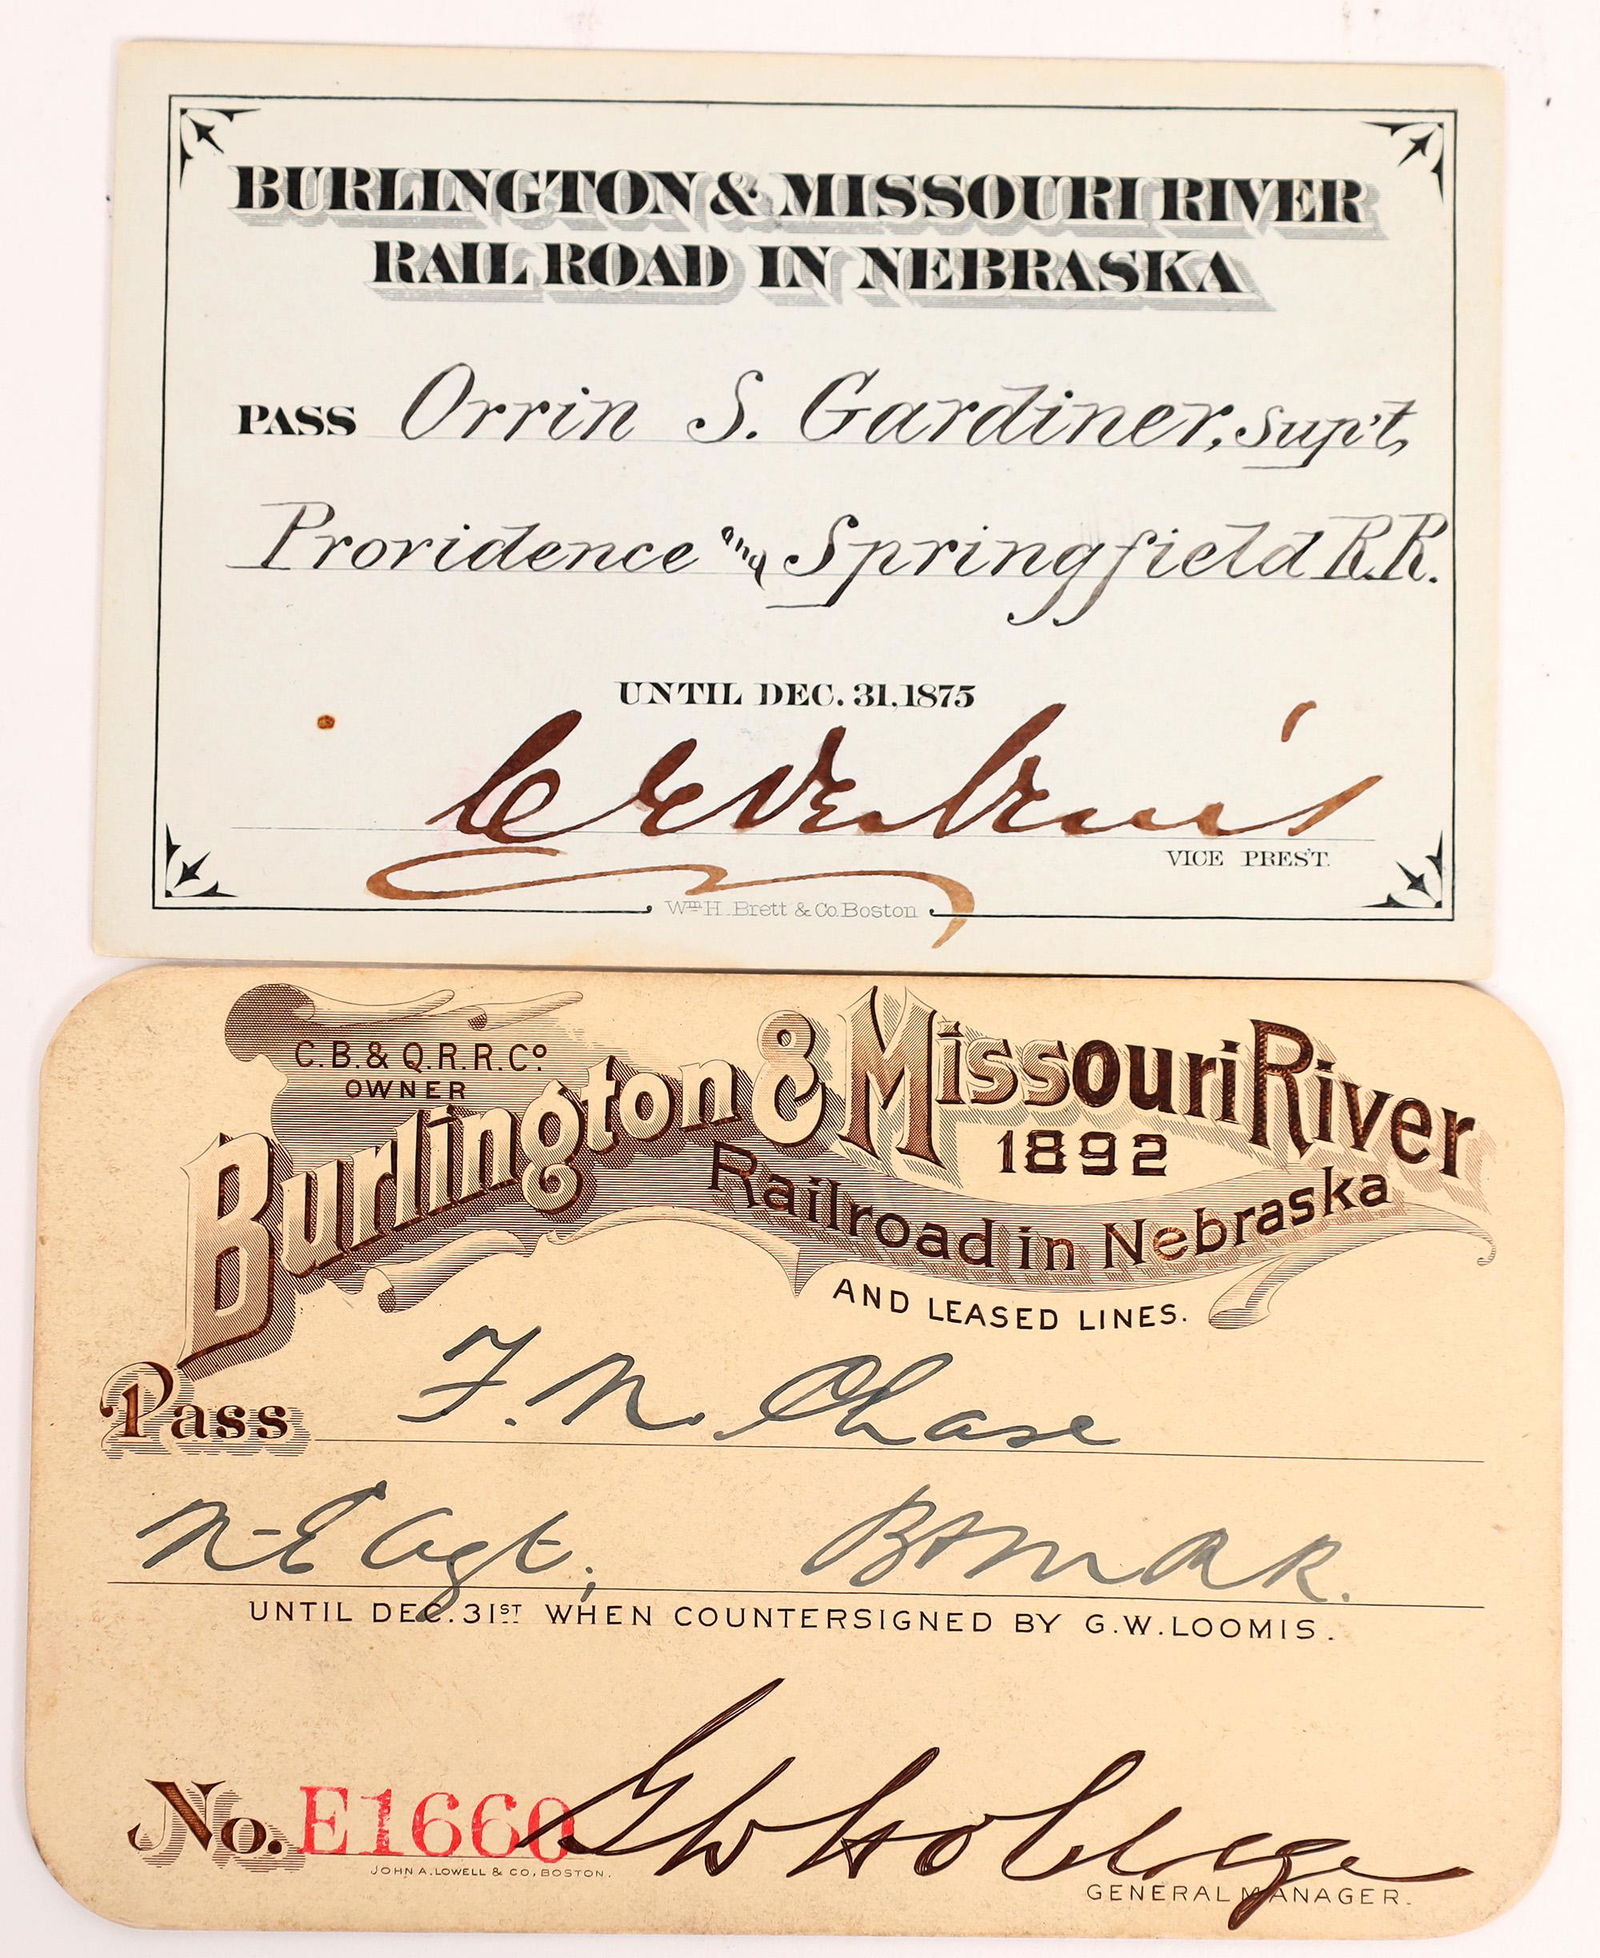 BURLINGTON & MISSOURI RIVER
RAIL ROAD IN NEBRASKA
PASS Orrin S. Gardiner, Sup't,
Providence and Springfield R.R.
UNTIL DEC. 31, 1875
VICE PREST.
Wm H. Brett & Co. Boston
C.B. & Q.R.R. Co
OWNER
Burlington & Missouri River
1892
Railroad in Nebraska
AND LEASED LINES.
Pass F. N. Chase
N-E Agt, B&M RR.
UNTIL DEC. 31ST WHEN COUNTERSIGNED BY G.W. LOOMIS.
No. E1660 GW Holdrege
JOHN A. LOWELL & CO, BOSTON.
GENERAL MANAGER.